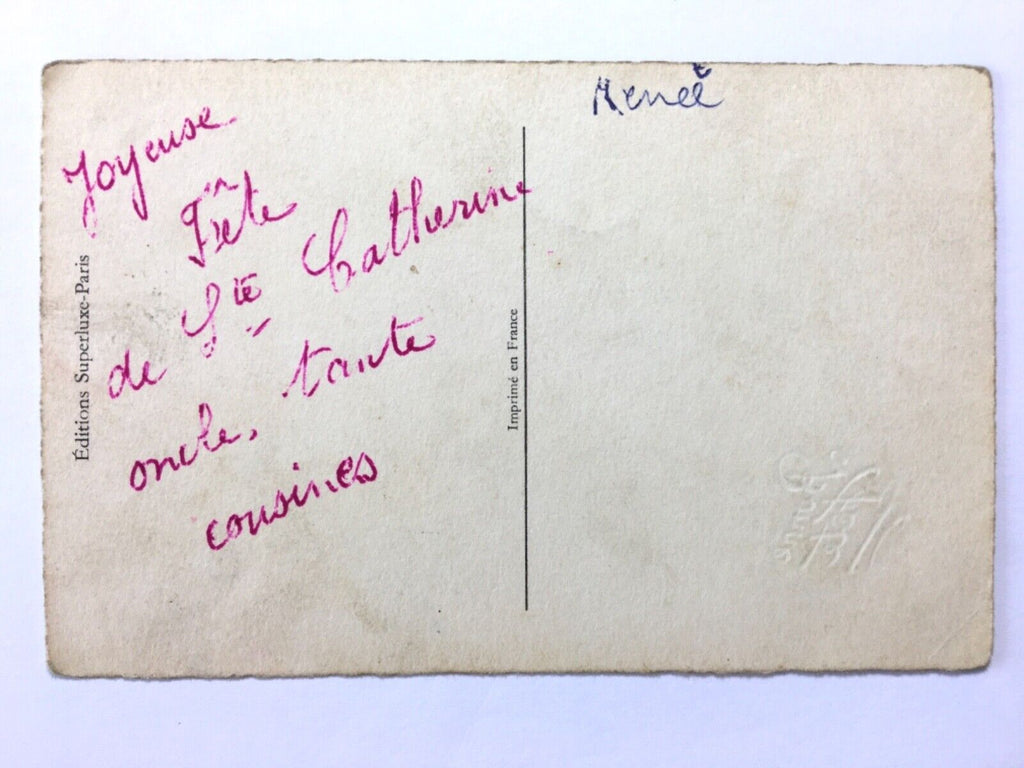 Joyeuse
Fête
de Ste Catherine
oncle, tante
cousines
Renée
Éditions Superluxe-Paris
Imprimé en France